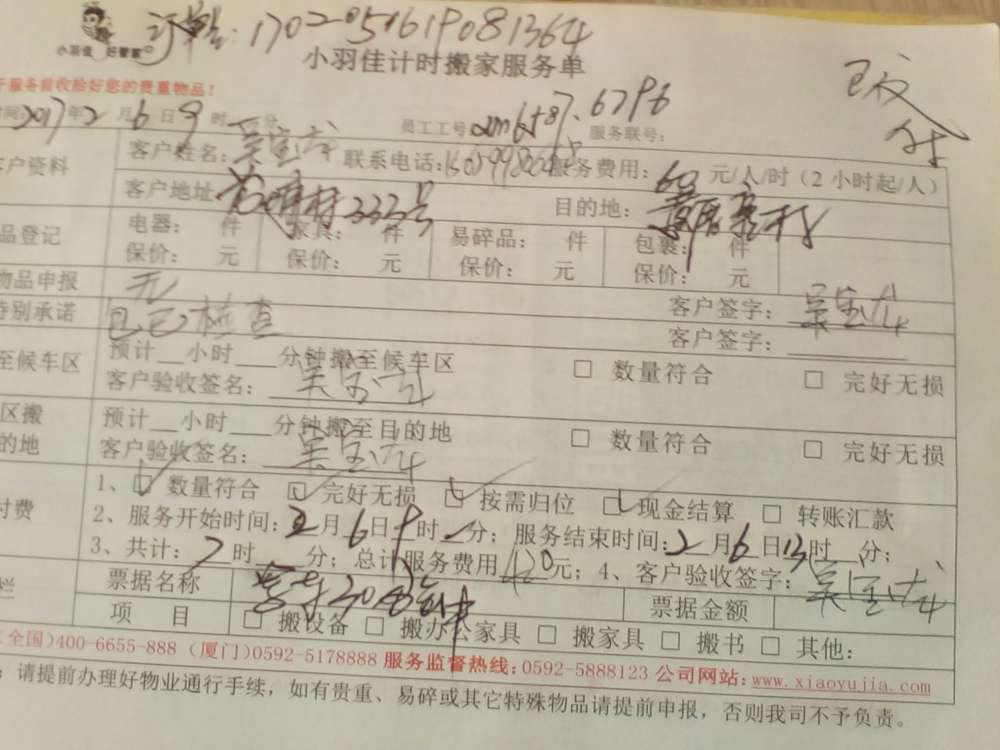 小羽佳 好管家
订单号:170205161908 1364
小羽佳计时搬家服务单
服务前收拾好您的贵重物品!
时间:2017年2月6日9时 分 员工工号 服务联号: 6796
已交
客户资料 客户姓名:吴宝龙 联系电话: 服务费用:60元/人/时(2小时起/人)
客户地址 村333号 目的地:
品登记 电器: 件 家具: 件 易碎品: 件 包裹: 件
保价: 元 保价: 元 保价: 元 保价: 元
物品申报 无 客户签字:吴宝龙
特别承诺 已检查 客户签字:
至候车区 预计__小时___分钟搬至候车区 □ 数量符合 □ 完好无损
客户验收签名:吴宝龙
区搬 预计__小时___分钟搬至目的地 □ 数量符合 □ 完好无损
的地 客户验收签名:吴宝龙
付费 1、☑ 数量符合 ☑ 完好无损 ☑ 按需归位 ☑ 现金结算 □ 转账汇款
2、服务开始时间:2月6日9时 分;服务结束时间:2月6日13时 分;
3、共计:7时 分;总计服务费用420元;4、客户验收签字:吴宝龙
栏 票据名称 票据金额
项 目 □ 搬设备 □ 搬办公家具 □ 搬家具 □ 搬书 □ 其他:
(全国)400-6655-888 (厦门)0592-5178888 服务监督热线:0592-5888123 公司网站:www.xiaoyujia.com
:请提前办理好物业通行手续,如有贵重、易碎或其它特殊物品请提前申报,否则我司不予负责。